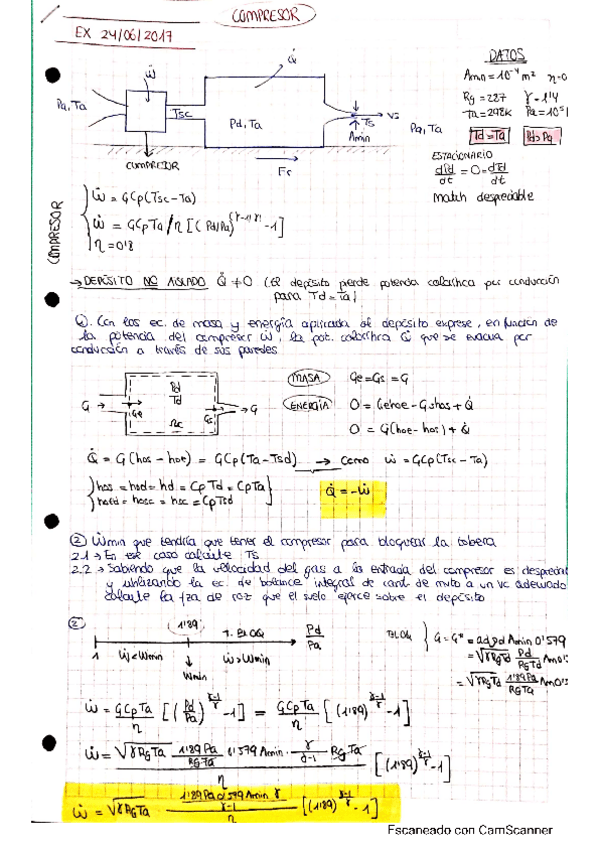 COMPRESOR
EX 24/06/2017
DATOS
Q̇
Ẇ
Amin = 10⁻⁴ m²
Rg = 287 γ = 1'4
Ta = 298K
Td = Ta Pd > Pa
Pa, Ta
Tsc
Pd, Ta
Ts
Vs
Amin
Pa, Ta
ESTACIONARIO
COMPRESOR
Fr
Match despreciable
Ẇ = GCp(Tsc - Ta)
Ẇ = GCpTa/η [(Pd/Pa)^(γ-1/γ) - 1]
η = 0'8
COMPRESOR
→ DEPÓSITO NO AISLADO Q̇ ≠ 0 (El depósito pierde potencia calorífica por conducción
para Td = Ta)
Con las ec. de masa y energía aplicada al depósito exprese, en función de
la potencia del compresor Ẇ, la pot. calorífica Q̇ que se evacua por
conducción a través de sus paredes
MASA Ge = Gs = G
ENERGÍA 0 = Gehoe - Gshos + Q̇
0 = G(hoe - hos) + Q̇
G → Ge
Pd
Td
Gs → G
Q̇ = G(hos - hoe) = GCp(Ta - Tsd) → Como Ẇ = GCp(Tsc - Ta)
hos = hod = hd = CpTd = CpTa
Q̇ = -Ẇ
② Ẇmin que tendría que tener el compresor para bloquear la tobera
2.1 → En ese caso calcule Ts
2.2 → Sabiendo que la velocidad del gas a la entrada del compresor es
y utilizando la ec. de balance integral de cant. de mvto a un vc adecuado
calcule la fza de roz que el suelo ejerce sobre el depósito
②
1'89 T. BLOQ Pd/Pa
1 Ẇ<Wmin Ẇ>Wmin
Wmin
T BLOQ { G = G* = ad ρd Amin 0'579
= √γRgTd Pd/RgTd
= √γRgTa 1'89Pa/RgTa
Ẇ = GCpTa/η [(Pd/Pa)^(γ-1/γ) - 1] = GCpTa/η [(1'89)^(γ-1/γ) - 1]
Ẇ = √γRgTa 1'89Pa/RgTa 0'579 Amin · γ/γ-1 RgTa / η [(1'89)^(γ-1/γ) - 1]
Ẇ = √γRgTa · 1'89Pa 0'579 Amin γ / γ-1 / η [(1'89)^(γ-1/γ) - 1]
Escaneado con CamScanner